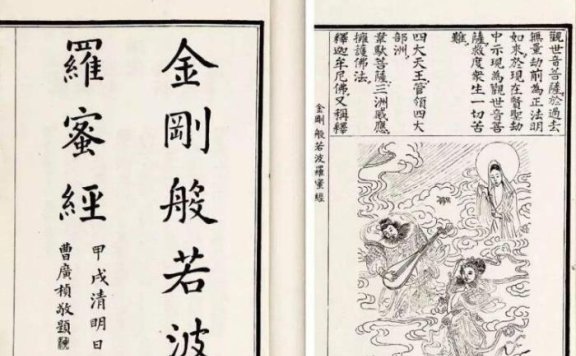 觀世音菩薩，於過去
無量劫前為正法明
如來，於現在賢聖劫
中示現為觀世音菩
薩，救度眾生一切苦
難，
四大天王，管領四大
部洲，
韋馱菩薩，三洲感應，
擁護佛法，
釋迦牟尼佛，又稱釋
金剛般若波羅蜜經
金剛般若波
羅蜜經
甲戌清明日
曹廣楨敬題